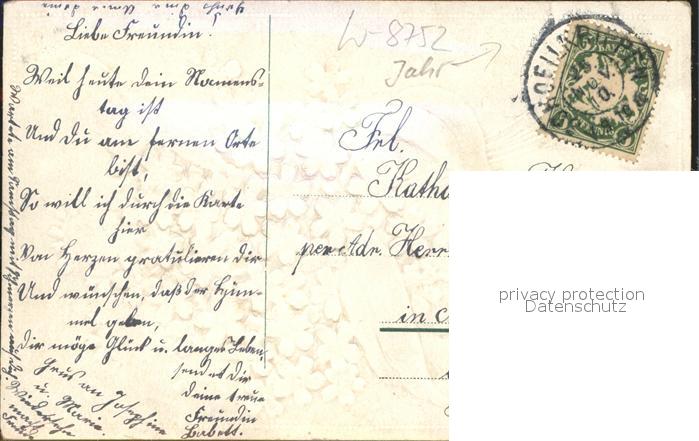 Liebe Freundin!
Weil heute dein Namens-
tag ist
Und Du am fernen Orte
bist,
So will ich durch die Karte
hier
Von Herzen gratulieren dir
Und wünschen, daß der Him-
mel geben,
dir möge Glück u. langes Leben,
sendet dir
deine treue
Freundin
Babett.
Grus an Josephine
u. Maria.
W-8752
Jahr
BAYERN
5
PFENNIG
Frl.
Katha
per Adr. Herr
in
privacy protection
Datenschutz